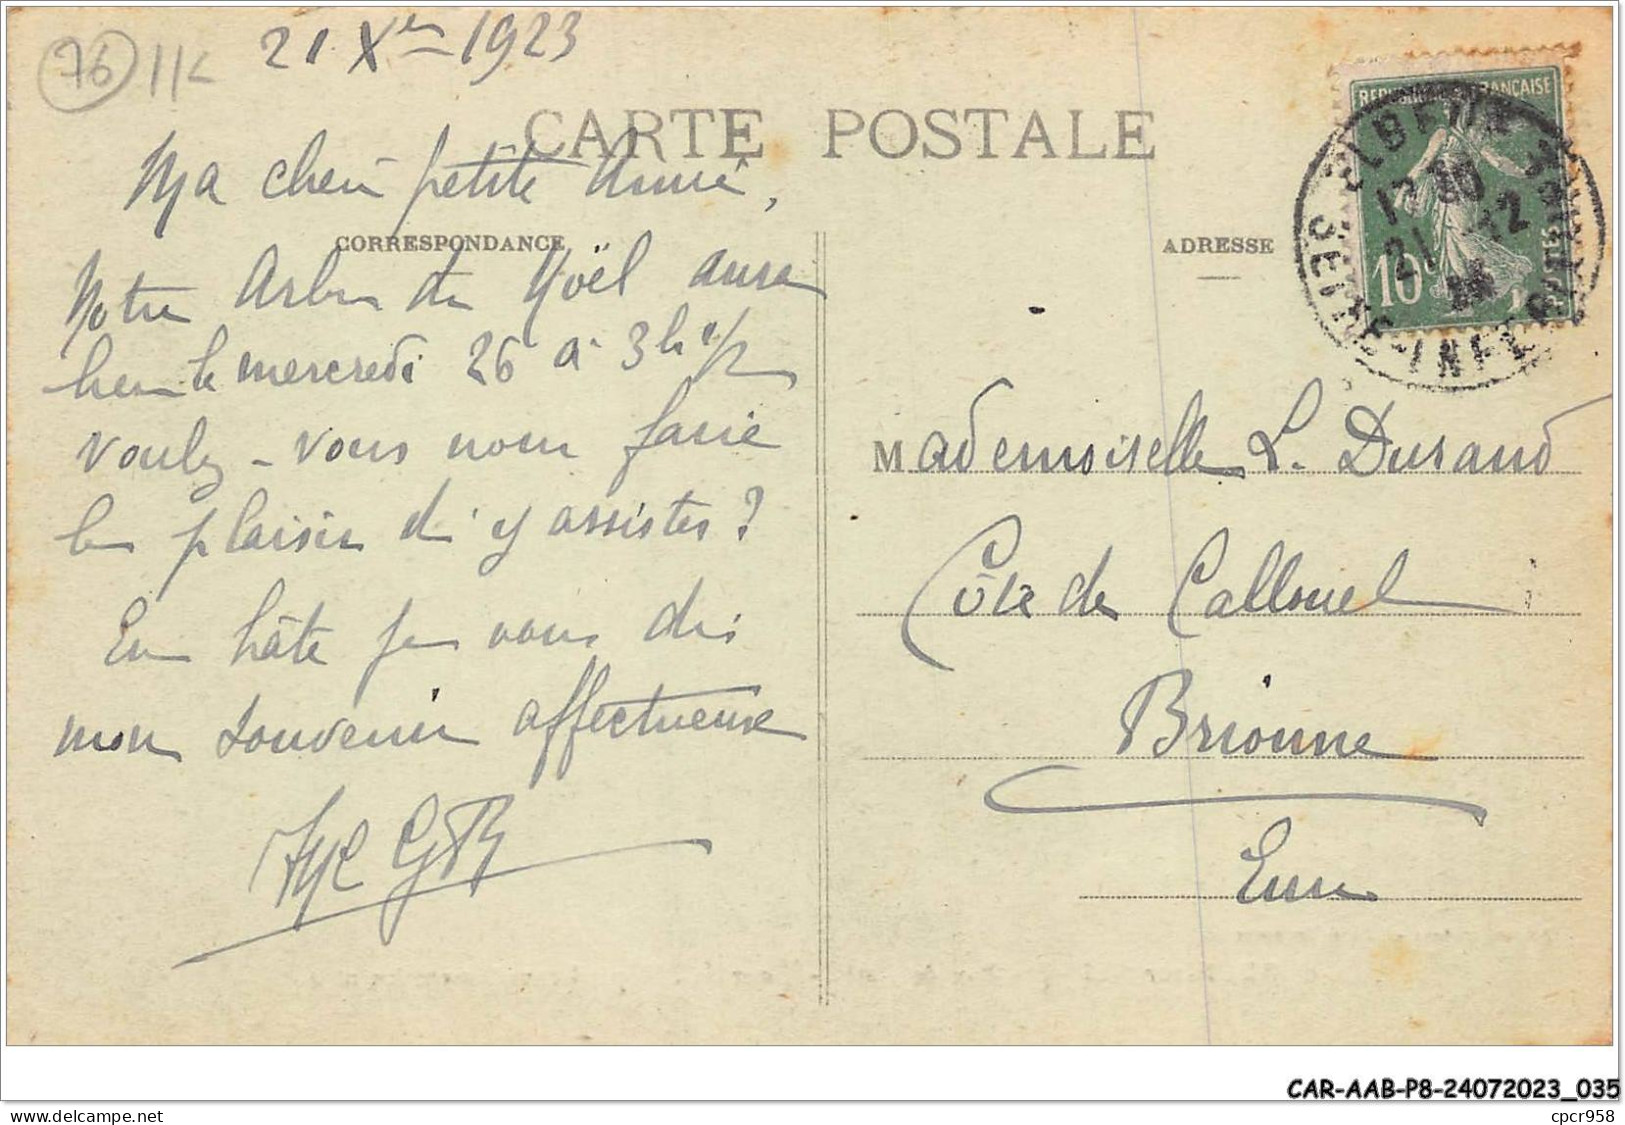 76 11K
21 Xre 1923
CARTE POSTALE
Ma chère petite Amie,
CORRESPONDANCE
Notre Arbre de Noël aura
lieu le mercredi 26 à 3h 1/2
voulez-vous nous faire
le plaisir d'y assister?
En hâte je vous dis
mon souvenir affectueux
ADRESSE
REPUBLIQUE FRANÇAISE
10c
ELBEUF
17 30
21 -12
SEINE-INFERIEURE
Mademoiselle L. Durand
Côte de Callouel
Brionne
Eure
CAR-AAB-P8-24072023_035
cpcr958